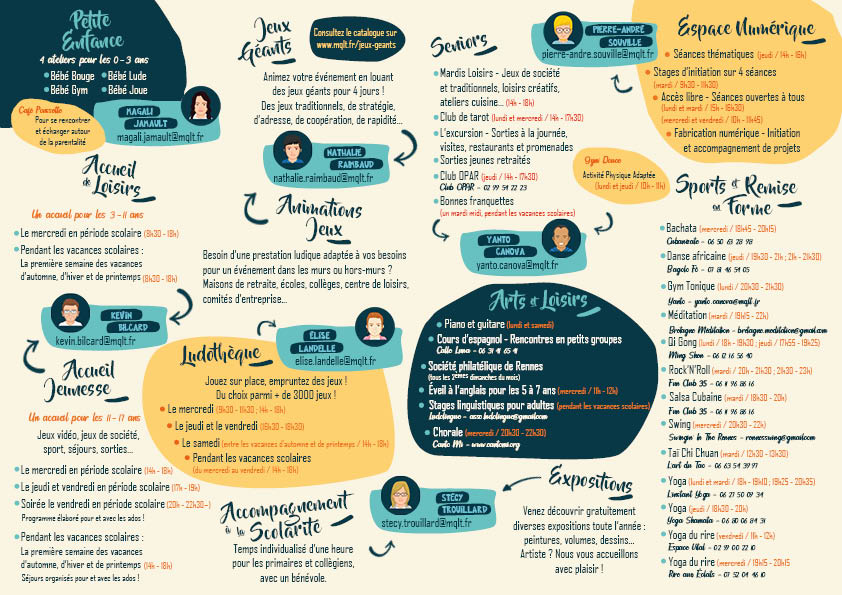 Petite
Enfance
4 ateliers pour les 0 - 3 ans
• Bébé Bouge • Bébé Lude
• Bébé Gym • Bébé Joue
Café Poussette
Pour se rencontrer
et échanger autour
de la parentalité
MAGALI
JAMAULT
magali.jamault@mqlt.fr
Accueil
de Loisirs
Un accueil pour les 3 - 11 ans
• Le mercredi en période scolaire (8h30 - 18h)
• Pendant les vacances scolaires :
La première semaine des vacances
d'automne, d'hiver et de printemps (8h30 - 18h)
KEVIN
BILCARD
kevin.bilcard@mqlt.fr
Accueil
Jeunesse
Un accueil pour les 11 - 17 ans
Jeux vidéo, jeux de société,
sport, séjours, sorties...
• Le mercredi en période scolaire (14h - 18h)
• Le jeudi et vendredi en période scolaire (17h - 19h)
• Soirée le vendredi en période scolaire (20h - 22h30~)
Programme élaboré pour et avec les ados !
• Pendant les vacances scolaires :
La première semaine des vacances
d'automne, d'hiver et de printemps (14h - 18h)
Séjours organisés pour et avec les ados !
Jeux
Géants
Consultez le catalogue sur
www.mqlt.fr/jeux-geants
Animez votre événement en louant
des jeux géants pour 4 jours !
Des jeux traditionnels, de stratégie,
d'adresse, de coopération, de rapidité...
NATHALIE
RAIMBAUD
nathalie.raimbaud@mqlt.fr
Animations
Jeux
Besoin d'une prestation ludique adaptée à vos besoins
pour un événement dans les murs ou hors-murs ?
Maisons de retraite, écoles, collèges, centre de loisirs,
comités d'entreprise...
ÉLISE
LANDELLE
elise.landelle@mqlt.fr
Ludothèque
Jouez sur place, empruntez des jeux !
Du choix parmi + de 3000 jeux !
• Le mercredi (9h30 - 11h30 ; 14h - 18h)
• Le jeudi et le vendredi (15h30 - 18h30)
• Le samedi (entre les vacances d'automne et de printemps / 14h - 18h)
• Pendant les vacances scolaires
(du mercredi au vendredi / 14h - 18h)
Accompagnement
à la
Scolarité
Temps individualisé d'une heure
pour les primaires et collégiens,
avec un bénévole.
STÉCY
TROUILLARD
stecy.trouillard@mqlt.fr
Seniors
• Mardis Loisirs - Jeux de société
et traditionnels, loisirs créatifs,
ateliers cuisine... (14h - 18h)
• Club de tarot (lundi et mercredi / 14h - 17h30)
• L'excursion - Sorties à la journée,
visites, restaurants et promenades
• Sorties jeunes retraités
• Club OPAR (jeudi / 14h - 17h30)
Club OPAR - 02 99 54 22 23
• Bonnes franquettes
(un mardi midi, pendant les vacances scolaires)
Gym Douce
Activité Physique Adaptée
(lundi et jeudi / 10h - 11h)
YANTO
CANOVA
yanto.canova@mqlt.fr
Arts et Loisirs
• Piano et guitare (lundi et samedi)
• Cours d'espagnol - Rencontres en petits groupes
• Société philatélique de Rennes
(tous les 2èmes dimanches du mois)
• Éveil à l'anglais pour les 5 à 7 ans (mercredi / 11h - 12h)
• Stages linguistiques pour adultes (pendant les vacances scolaires)
• Chorale (mercredi / 20h30 - 22h30)
Expositions
Venez découvrir gratuitement
diverses expositions toute l'année :
peintures, volumes, dessins...
Artiste ? Nous vous accueillons
avec plaisir !
PIERRE-ANDRÉ
SOUVILLE
pierre-andre.souville@mqlt.fr
Espace Numérique
• Séances thématiques (jeudi / 14h - 16h)
• Stages d'initiation sur 4 séances
(mardi / 9h30 - 11h30)
• Accès libre - Séances ouvertes à tous
(lundi et mardi / 15h - 16h30)
(mercredi et vendredi / 10h - 11h45)
• Fabrication numérique - Initiation
et accompagnement de projets
Sports et Remise
en Forme
• Bachata (mercredi / 18h45 - 20h15)
Cubanicole - 06 50 63 28 98
• Danse africaine (jeudi / 19h30 - 21h ; 21h - 21h30)
Bagolo Fò - 07 81 46 54 05
• Gym Tonique (lundi / 20h30 - 21h30)
Yanto - yanto.canova@mqlt.fr
• Méditation (mardi / 19h15 - 22h)
Bretagne Méditation - bretagne.meditation@gmail.com
• Qi Gong (lundi / 18h - 19h30 ; jeudi / 17h55 - 19h25)
Ming Shen - 06 12 16 56 40
• Rock'N'Roll (mardi / 20h - 21h30 ; 21h30 - 23h)
Fun Club 35 - 06 11 96 88 16
• Salsa Cubaine (mardi / 18h30 - 20h)
Fun Club 35 - 06 11 96 88 16
• Swing (mercredi / 20h30 - 22h)
Swingin In The Rennes - rennesswing@gmail.com
• Tai Chi Chuan (mardi / 12h30 - 13h30)
L'art du Tao - 06 63 54 39 97
• Yoga (lundi et mardi / 18h - 19h10 ; 19h25 - 20h35)
L'instant Yoga - 06 27 50 09 34
• Yoga (jeudi / 18h30 - 20h)
Yoga Shamata - 06 80 06 84 31
• Yoga du rire (vendredi / 11h - 12h)
Espace Vital - 02 99 00 22 10
• Yoga du rire (mercredi / 19h15 - 20h15
Rire aux Éclats - 07 52 04 46 10